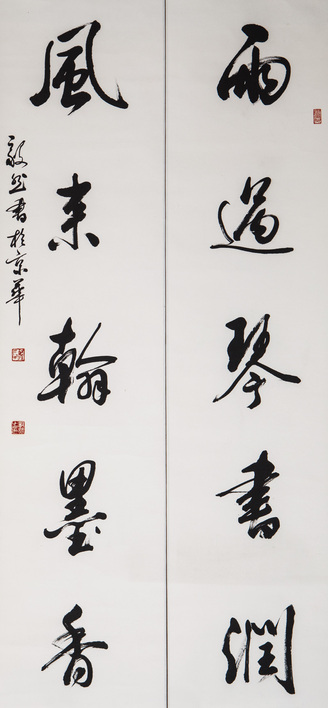 雨過琴書潤
風来翰墨香
毅然書於京華